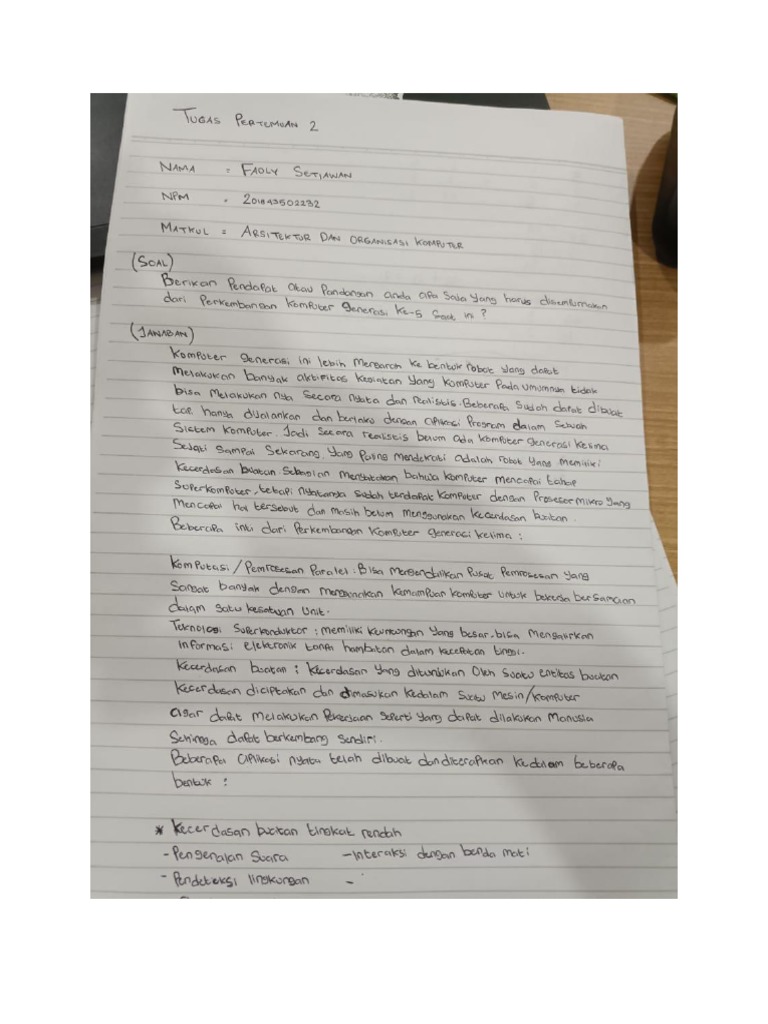 TUGAS PERTEMUAN 2
NAMA : FADLY SETIAWAN
NPM : 201843502282
MATKUL = ARSITEKTUR DAN ORGANISASI KOMPUTER
(SOAL)
Berikan Pendapat atau Pandangan anda apa saja yang harus disempurnakan
dari Perkembangan Komputer generasi Ke-5 saat ini ?
(JAWABAN)
Komputer generasi ini lebih Mengarah ke bentuk robot yang dapat
Melakukan banyak aktifitas kegiatan yang komputer Pada umumnya tidak
bisa Melakukan nya Secara nyata dan realistis. Beberapa Sudah dapat dibuat
tapi hanya dijalankan dan berlaku dengan aplikasi Program dalam Sebuah
Sistem Komputer. Jadi Secara realistis belum ada komputer generasi kelima
Sejati Sampai Sekarang, yang Paling mendekati adalah robot yang memiliki
Kecerdasan buatan. Sebagian mengatakan bahwa komputer mencapai tahap
Superkomputer, tetapi nyatanya sudah terdapat komputer dengan Prosesor mikro yang
Mencapai hal tersebut dan masih belum menggunakan kecerdasan buatan.
Beberapa inti dari Perkembangan Komputer generasi kelima :
Komputasi / Pemrosesan Paralel : Bisa Mengendalikan Pusat Pemrosesan yang
Sangat banyak dengan menggunakan kemampuan komputer untuk bekerja bersamaan
dalam satu kesatuan unit.
Teknologi Superkonduktor : memiliki keuntungan yang besar, bisa Mengalirkan
informasi elektronik tanpa hambatan dalam kecepatan tinggi.
Kecerdasan buatan : kecerdasan yang ditunjukan Oleh Suatu entitas buatan
Kecerdasan diciptakan dan dimasukan kedalam Suatu Mesin/komputer
agar dapat melakukan Pekerjaan Seperti yang dapat dilakukan Manusia
Sehingga dapat berkembang Sendiri.
Beberapa aplikasi nyata telah dibuat dan diterapkan kedalam beberapa
bentuk :
* Kecerdasan buatan tingkat rendah
- Pengenalan Suara - Interaksi dengan benda mati
- Pendeteksi lingkungan -